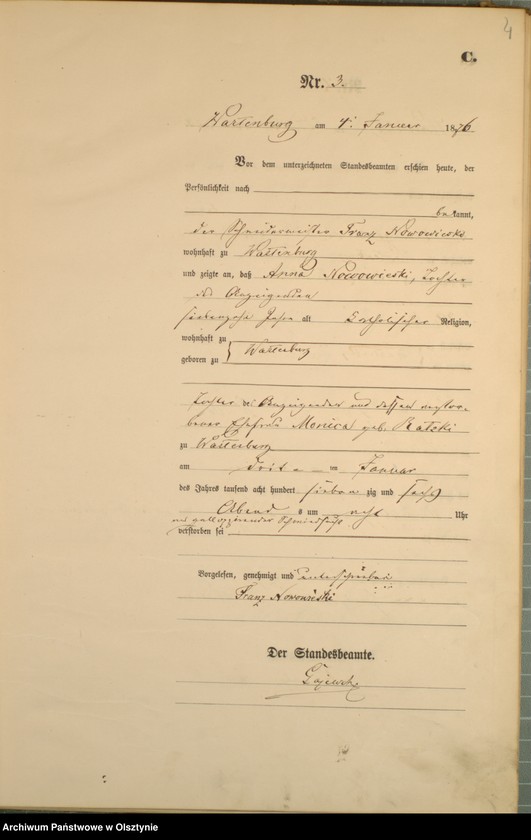 4
C.
Nr. 3.
Wartenburg am 4. Januar 1876
Vor dem unterzeichneten Standesbeamten erschien heute, der
Persönlichkeit nach
bekannt,
der Schneidermeister Franz Nowowieski
wohnhaft zu Wartenburg
und zeigte an, daß Anna Nowowieski, Tochter
des Anzeigenden
siebenzehn Jahre alt katholischer Religion,
wohnhaft zu
geboren zu Wartenburg
Tochter des Anzeigenden und dessen verstor-
benen Ehefrau Monica geb.
zu Wartenburg
am dritten Januar
des Jahres tausend acht hundert siebenzig und sechs
Abends um acht Uhr
verstorben sei
Vorgelesen, genehmigt und unterschrieben
Franz Nowowieski
Der Standesbeamte.
Archiwum Państwowe w Olsztynie